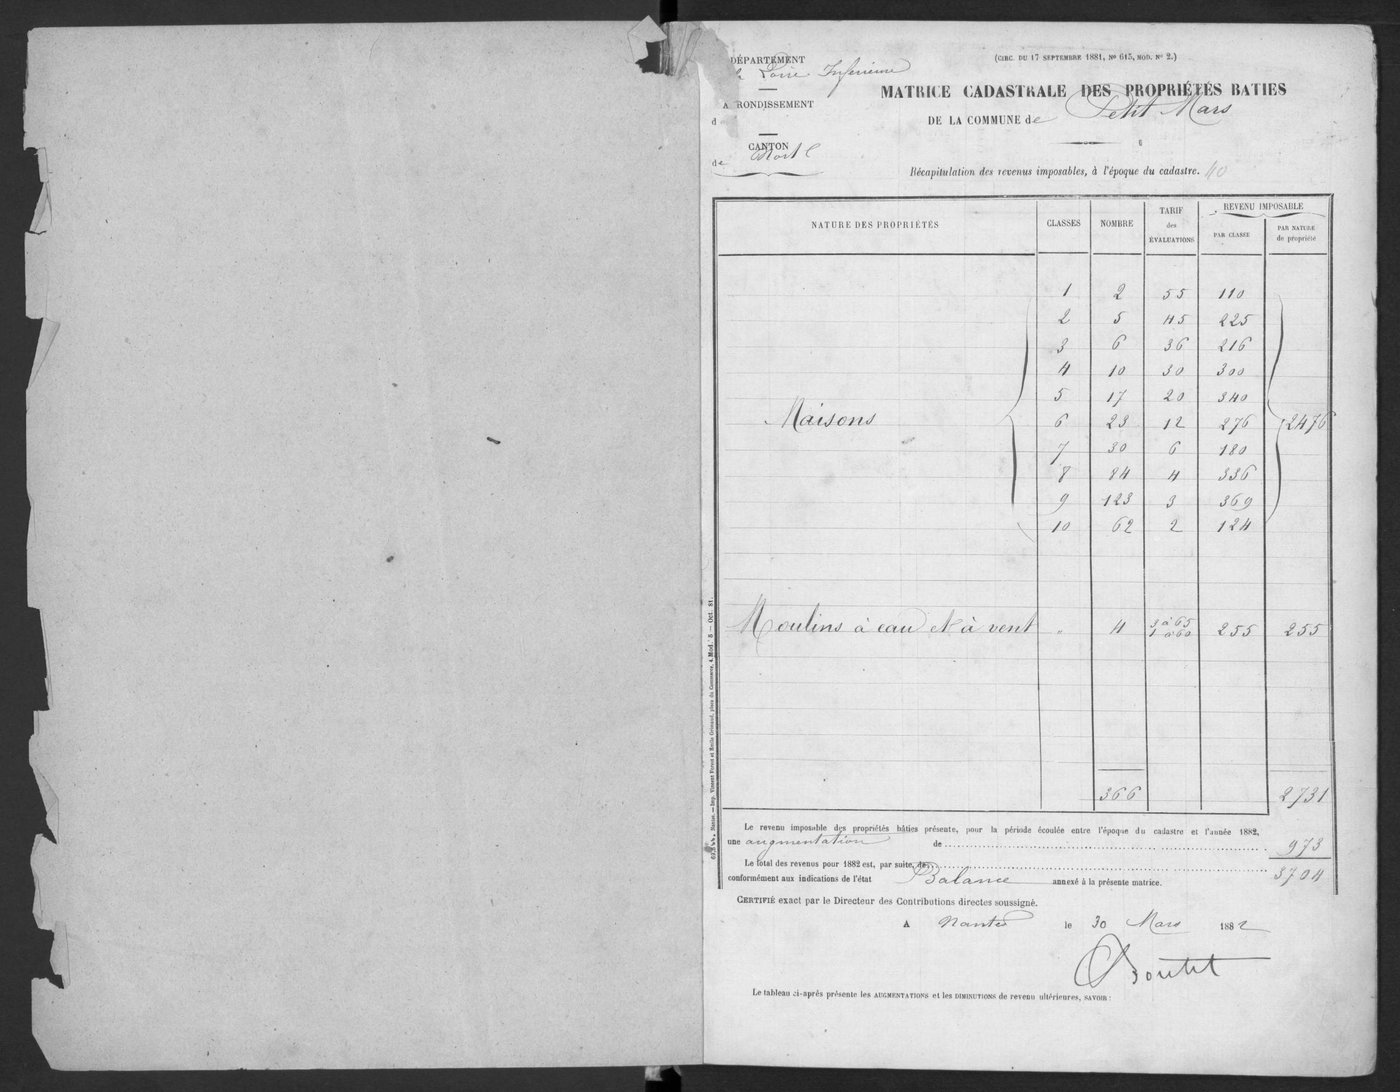 DÉPARTEMENT
Loire Inférieure
(CIRC. DU 17 SEPTEMBRE 1881, No 615, MOD. No 2.)
MATRICE CADASTRALE DES PROPRIÉTÉS BATIES
A RONDISSEMENT
d
DE LA COMMUNE de Petit Mars
CANTON
de Nort
Récapitulation des revenus imposables, à l'époque du cadastre. 40
NATURE DES PROPRIÉTÉS CLASSES NOMBRE TARIF des ÉVALUATIONS REVENU IMPOSABLE PAR CLASSE PAR NATURE de propriété
1 2 55 110
2 5 45 225
3 6 36 216
4 10 30 300
5 17 20 340
Maisons 6 23 12 276 2476
7 30 6 180
8 84 4 336
9 123 3 369
10 62 2 124
Moulins à eau et à vent " 4 3 à 65 1 à 60 255 255
366 2731
Le revenu imposable des propriétés bâties présente, pour la période écoulée entre l'époque du cadastre et l'année 1882,
une augmentation de 973
Le total des revenus pour 1882 est, par suite, de 3704
conformément aux indications de l'état Balance annexé à la présente matrice.
CERTIFIÉ exact par le Directeur des Contributions directes soussigné.
A Nantes le 30 Mars 1882
Boutet
Le tableau ci-après présente les AUGMENTATIONS et les DIMINUTIONS de revenu ultérieures, SAVOIR :
Nantes. — Imp. Vincent Forest et Emile Grimaud, place du Commerce, 4. Mod. 5 — Oct. 81.